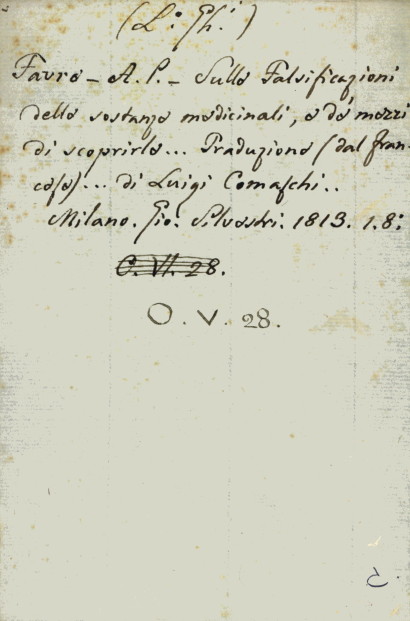 (L.° Gh.i)
Favre - A. P. - Sulle Falsificazioni
delle sostanze medicinali, e de' mezzi
di scoprirle... Traduzione (dal fran-
cese)... di Luigi Comaschi..
Milano. Gio. Silvestri. 1813. 1. 8.°
C. VI. 28.
O. V. 28.